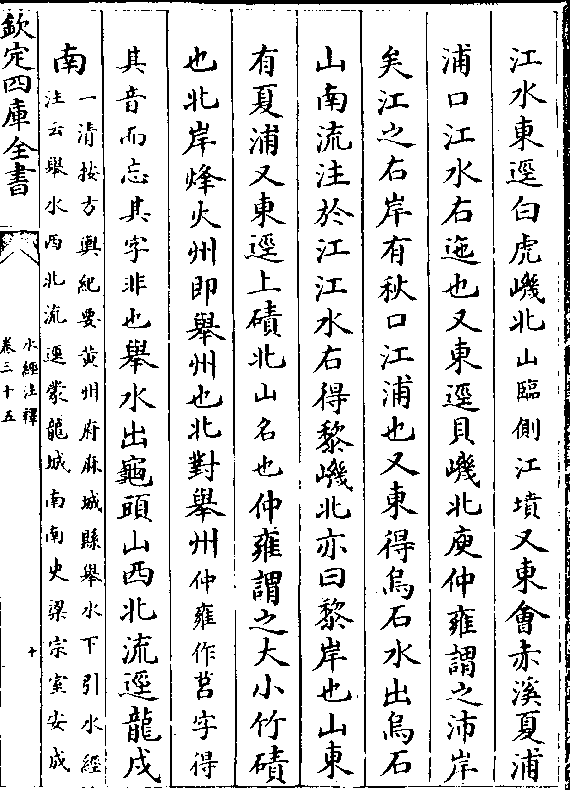 江水東逕白虎磯北山臨側江墳又東會赤溪夏浦
浦口江水右迤也又東逕貝磯北庾仲雍謂之沛岸
矣江之右岸有秋口江浦也又東得烏石水出烏石
山南流注於江江水右得黎磯北亦曰黎岸也山東
有夏浦又東逕上磧北山名也仲雍謂之大小竹磧
也北岸烽火州即舉州也北對舉州仲雍作莒字得
其音而忘其字非也舉水出龜頭山西北流逕龍戍
南一清按方輿紀要黃州府麻城縣舉水下引水經
注云舉水西北流逕蒙龍城南南史梁宗室安成
欽定四庫全書
水經注釋
卷三十五
十